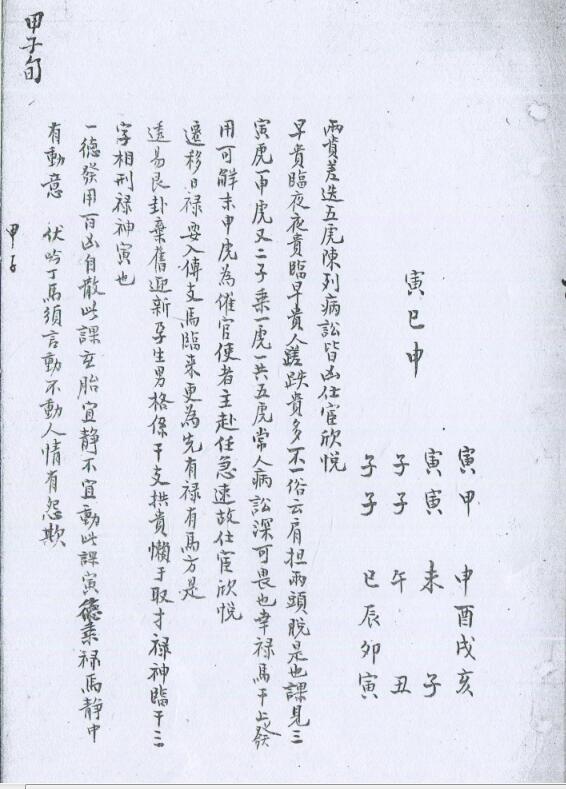 寅甲 申酉戌亥
寅寅 未 子
子子 午 丑
子子 巳辰卯寅
寅巳申
兩貴差迭五虎陳列病訟皆凶仕宦欣悅
早貴臨夜夜貴臨早貴人蹉跌貴多不一俗云肩担兩頭脫是也課見三
寅虎一申虎又二子乘一虎一共五虎常人病訟深可畏也幸禄馬干上發
用可解末申虎為催官使者主赴任急速故仕宦欣悅
遷移日禄要入傳支馬臨来更為先有禄有馬方是
透易艮卦棄舊迎新孕生男格係干支拱貴懶于取才禄神臨干三
字相刑禄神寅也
一德發用百凶自散此課玄胎宜静不宜動此課寅德乘禄馬静中
有動意 伏吟丁馬須言動不動人情有怨欺
甲子
甲子旬